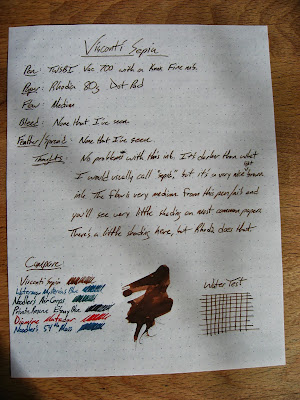 Visconti Sepia
Pen: TWSBI Vac 700 with a Knox Fine nib.
Paper: Rhodia 80g Dot Pad
Flow: Medium
Bleed: None that I've seen.
Feather/Spread: None that I've seen.
Thoughts: No problems with this ink. It's darker than what
I would usually call "sepia", but it's a very nice brown
ink. The flow is very medium from this pen/nib and
you'll see very little shading on most common papers.
There's a little shading here, but Rhodia does that.
Compare:
Visconti Sepia
Waterman Mysterious Blue
Noodler's Air Corps
Private Reserve Ebony Blue
Diamine Matador
Noodler's 54th Mass
Water Test